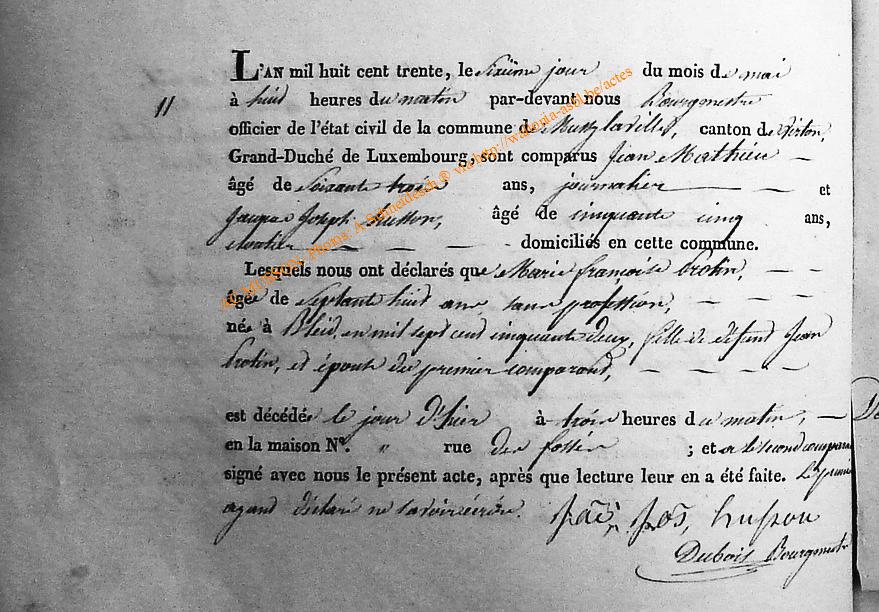 L'AN mil huit cent trente, le sixième jour du mois de mai
11
à huit heures du matin par-devant nous Bourgmestre
officier de l'état civil de la commune de Mussylaville, canton de Virton,
Grand-Duché de Luxembourg, sont comparus Jean Mathieu —
âgé de soixante trois ans, journalier — — — et
Jacque Joseph husson, âgé de cinquante cinq ans,
— — — — domiciliés en cette commune.
Lesquels nous ont déclarés que Marie françoise Protin, — —
âgée de septante huit ans, sans profession, — — — —
née à Bleid, en mil sept cent cinquante deux, fille de défunt Jean
protin, et épouse du premier comparant, — — — —
est décédée le jour d'hier à trois heures du matin, —
en la maison N°. " rue des fossés ; et a le second comparant
signé avec nous le présent acte, après que lecture leur en a été faite. Le premier
ayant déclaré ne savoir écrire. jac, jos, husson
Dubois Bourgmestre
AS MUSSON Photos: A.Schneidesch ® via http://wallonia-asbl.be/actes